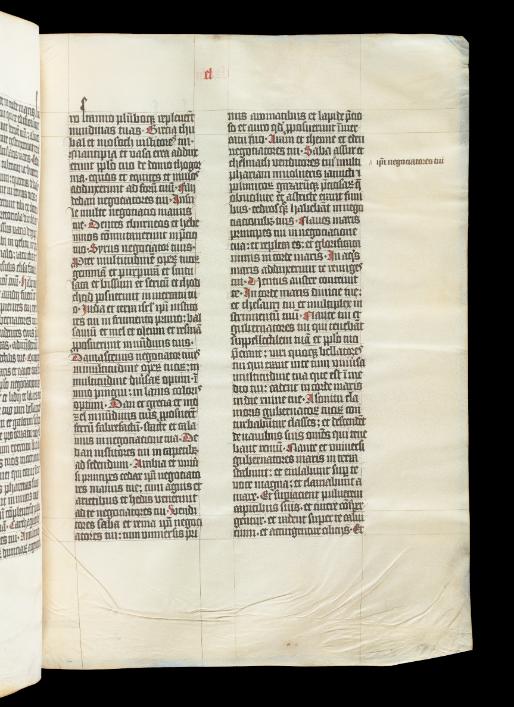 el
ro stanno plūboq; repleuerūt
nundinas tuas. Grecia thu
bal et mosoch institores tui
mancipia et vasa erea addux
erunt pplo tuo de domo thogor
ma. equos et equites et mulos
adduxerunt ad forū tuū. Filij
dedan negociatores tui. Insu
le multe negociatio manus
tue. Dentes eburneos et hebe
ninos cōmutauerunt in pcio
tuo. Syrus negociator tuus.
Ppter multitudinem operū tuorū
gemmā et purpurā et scutu
lata et bissum et sericū et chod
chod posuerunt in mercatu tu
o. Iuda et terra israel ipi instito
res tui in frumento primo. bal
samū et mel et oleum et resinā
pposuerunt in nundinis tuis.
Damascenus negociator tuus
in multitudine operū tuorū: in
multitudine diuersarū opum. in
vino pingui: in lanis coloris
optimi. Dan et grecia et mo
zel in nundinis tuis pposuerūt
ferrū fabrefactū. stacte et cala
mus in negociatione tua. De
dan institores tui in tapetibus
ad sedendum. Arabia et vniū
si principes cedar ipi negociato
res manus tue: cum agnis et
arietibus et hedis venerunt
ad te negociatores tui. Vendi
tores saba et rema ipi negoci
atores tui: cum vniuersis pri
mis aromatibus et lapide precio
so et auro qd pposuerunt in mer
catu tuo. Aram et chenne et eden
negociatores tui. Saba assur et
chelmath venditores tui multi
phariam inuolucris iacincti et
polimitorū gazarūq; preciosarū q
obuolute et astricte erant funi
bus. cedros q; habebant in nego
ciationibus tuis. Naues maris
principes tui in negociatione
tua: et repleta es et glorificata
nimis in corde maris. In aquis
multis adduxerunt te remiges
tui. Ventus auster contriuit
te. In corde maris diuicie tue:
et thesauri tui et multiplex in
strumentū tuū. Naute tui et
gubernatores tui qui tenebant
suppellectilem tuā et pplo tuo
preerant: viri quoq; bellatores
tui qui erant in te cum vniuersa
multitudine tua que est in me
dio tui: cadent in corde maris
in die ruine tue. A sonitu cla
moris gubernatorū tuorū con
turbabuntur classes: et descendent
de nauibus suis omēs qui tene
bant remū. Naute et vniuersi
gubernatores maris in terra
stabunt: et eiulabunt super te
voce magna: et clamabunt a
mare. Et superiacient puluerem
capitibus suis. et cinere cōsper
gentur. et radent super te calui
cium. et accingentur ciliciis. Et
ipi negociatores tui